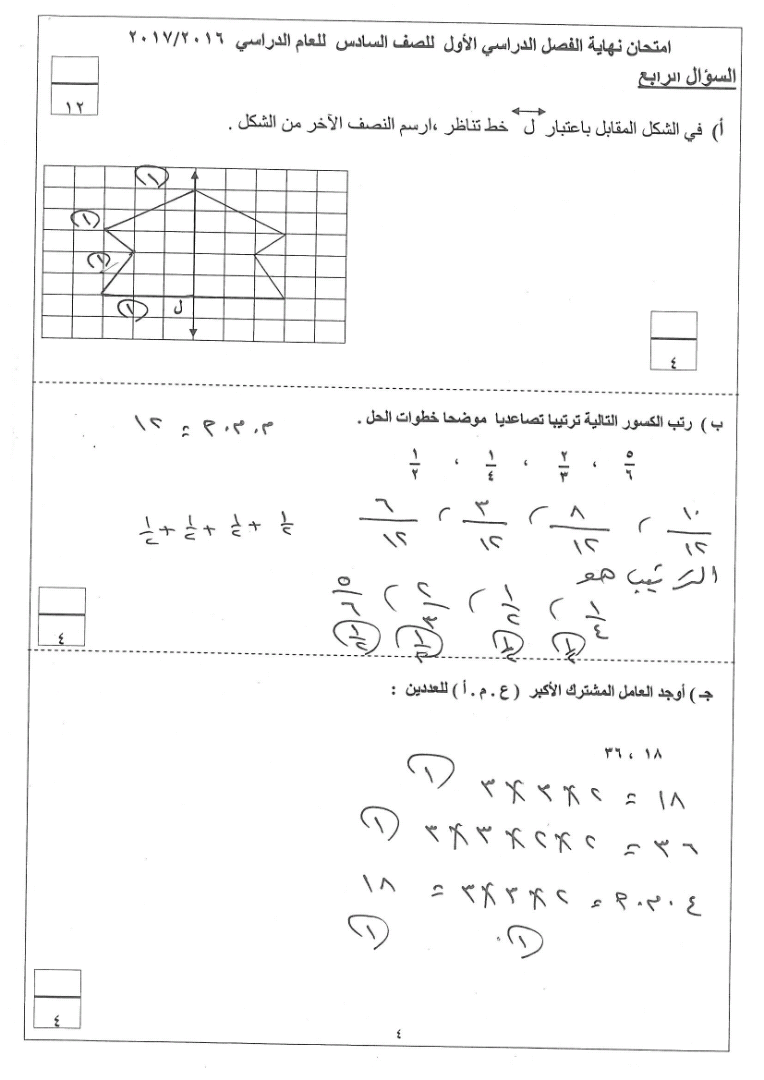 امتحان نهاية الفصل الدراسي الأول للصف السادس للعام الدراسي ٢٠١٧/٢٠١٦
السؤال الرابع
١٢
أ) في الشكل المقابل باعتبار ل خط تناظر ،ارسم النصف الآخر من الشكل .
١
١
١
١
ل
٤
ب ) رتب الكسور التالية ترتيبا تصاعديا موضحا خطوات الحل .
م.م.أ = ١٢
٥/٦ ، ٢/٣ ، ١/٤ ، ١/٢
١٠/١٢ ، ٨/١٢ ، ٣/١٢ ، ٦/١٢
١/٢ + ١/٢ + ١/٢ + ١/٢
الترتيب هو
١/٤ ، ١/٢ ، ٢/٣ ، ٥/٦
٤
جـ ) أوجد العامل المشترك الأكبر ( ع . م . أ ) للعددين :
١٨ ، ٣٦
١٨ = ٢ × ٣ × ٣ ١
٣٦ = ٢ × ٢ × ٣ × ٣ ١
ع.م.أ = ٢ × ٣ × ٣ = ١٨
١ ١
٤
٤